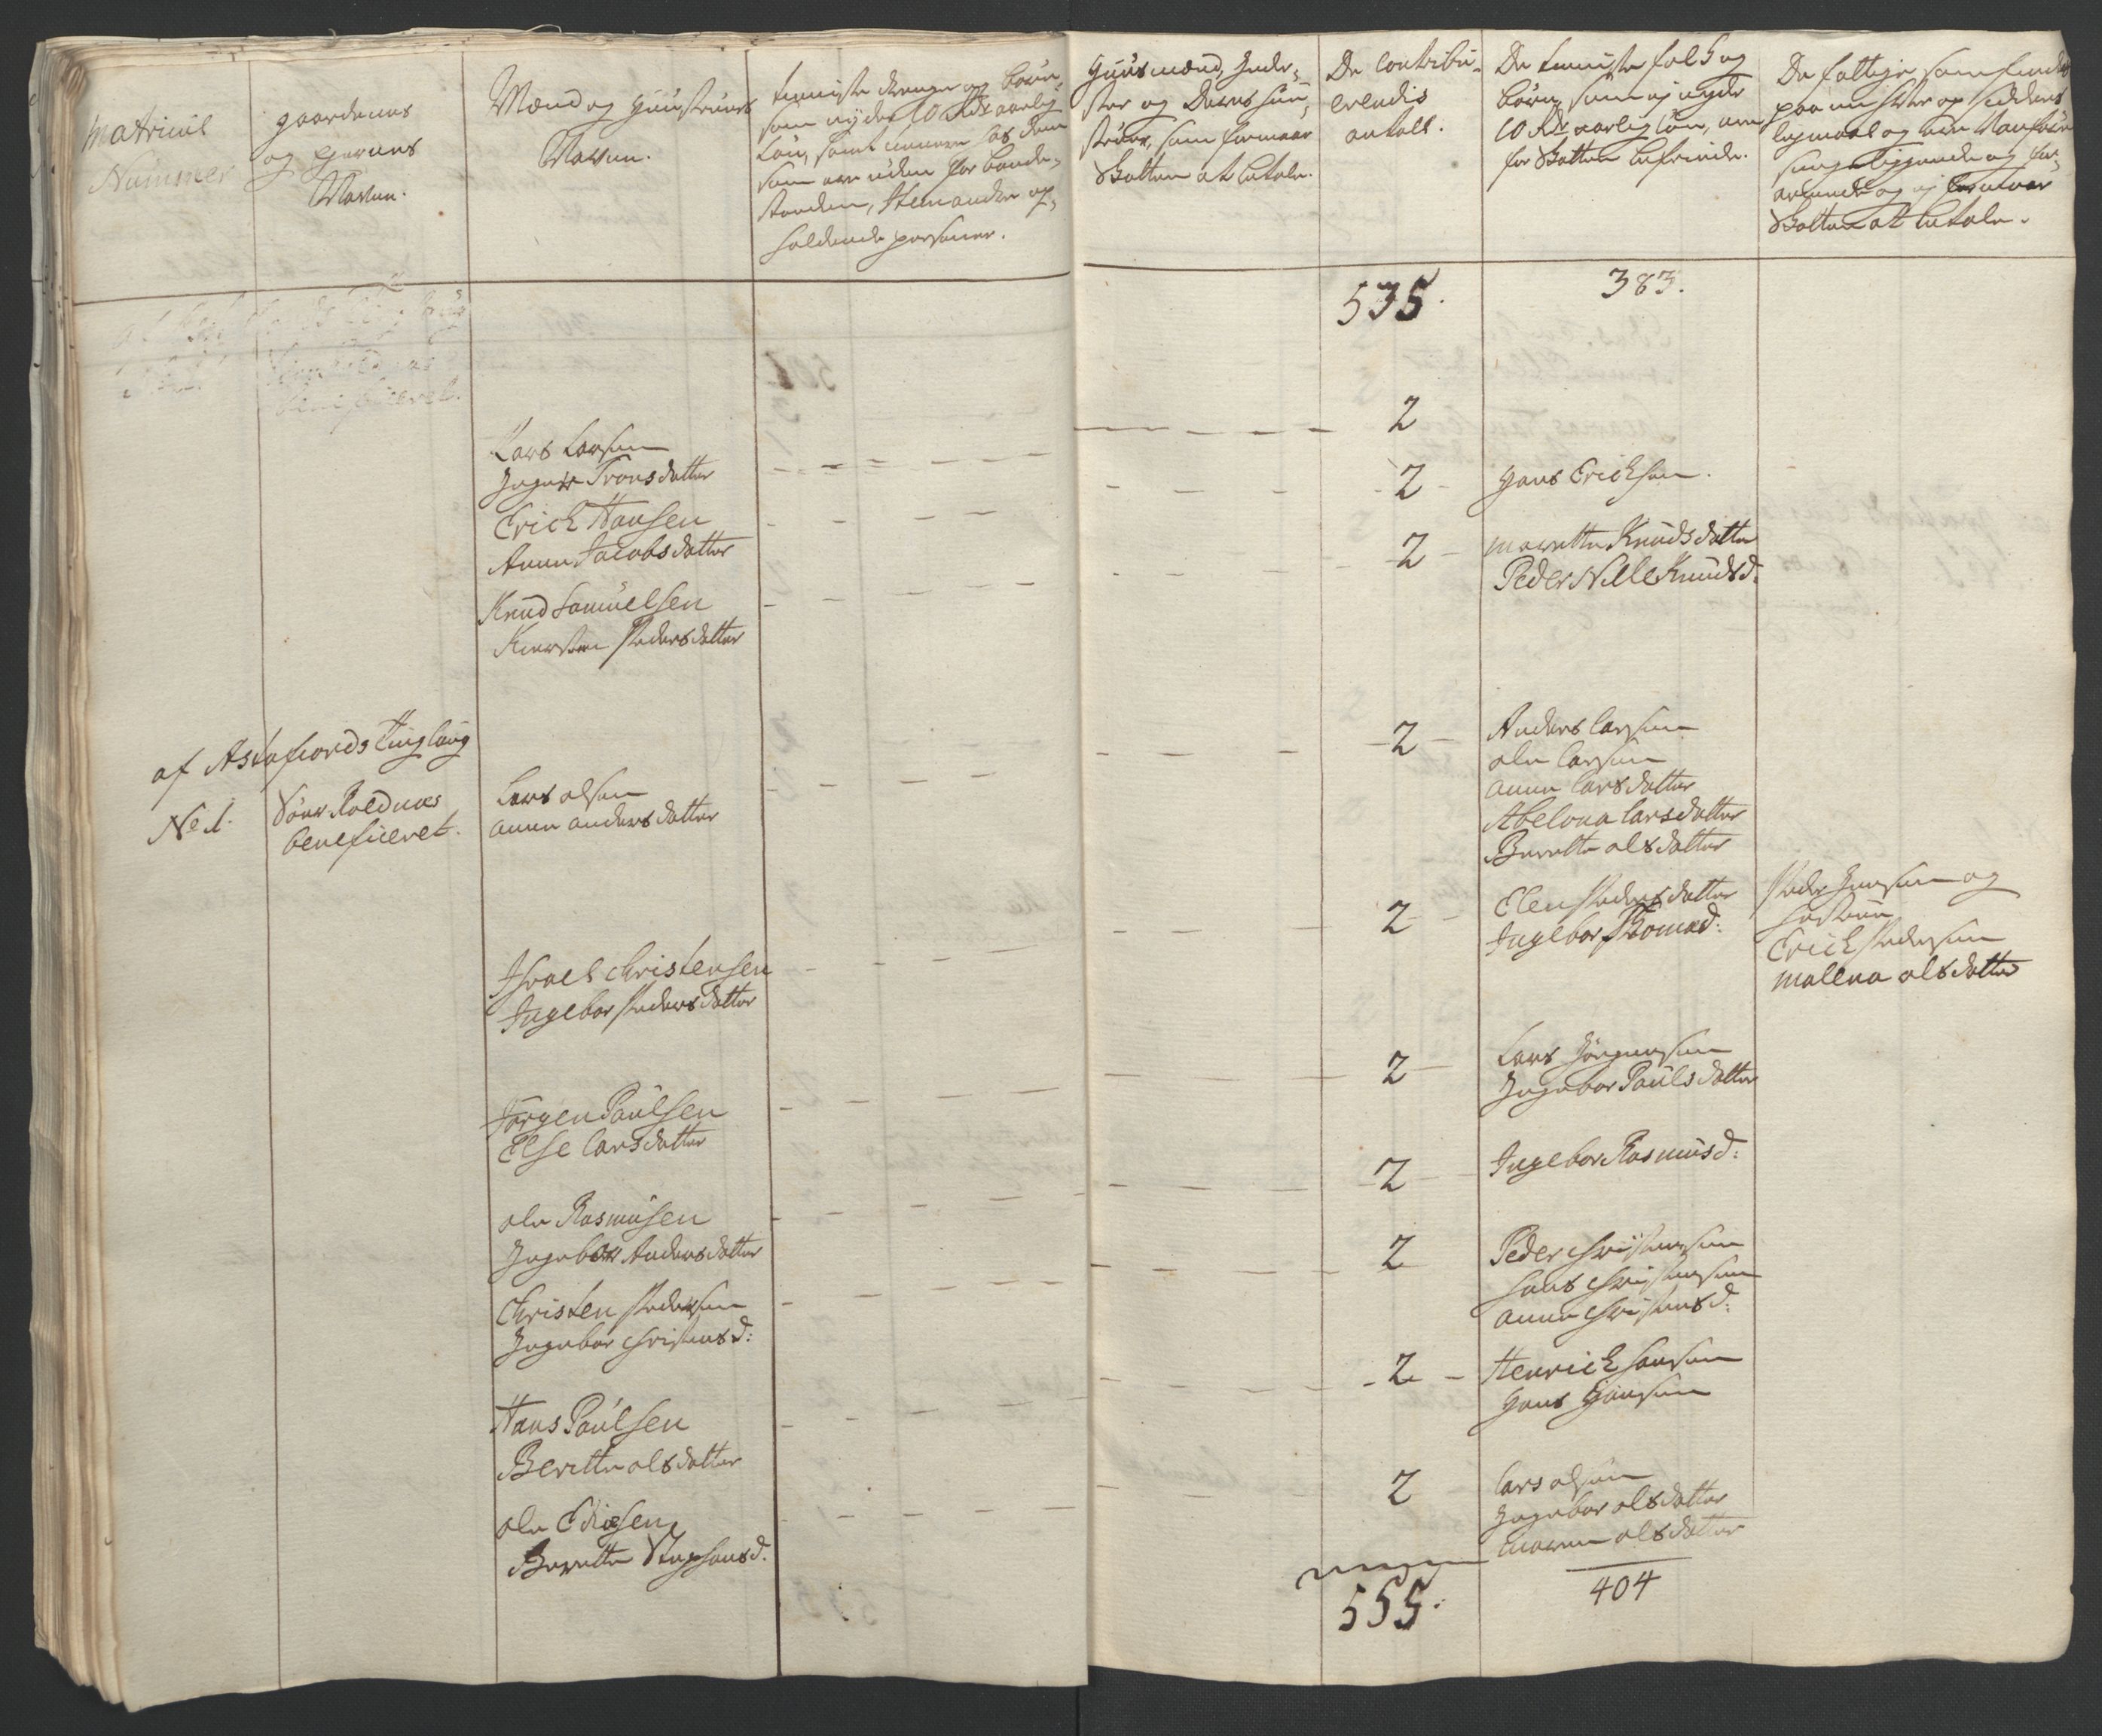 Matricul
Nummer
gaardenes
og Ejernes
Navne.
Mænd og Huustruers
Navne.
tieniste drenge og børn
som nyder 10 Rdr aarlig
Løn, samt
som ere uden for bonde-
standen, Item andre op-
holdende personer.
Huusmænd, Inder-
ster og Deres Huu-
struer, som formaar
Skatten at betale.
De Contribu-
erendis
antall.
De tieniste folk og
børn som ej nyder
10 Rdr aarlig løn, ere
for Skatten befriede.
De fattige som findes
paa
lægmaal og
senge liggende og
og ej
Skatten at betale.
535.
383.
Lars Larsen
Inger Tronsdatter
2
Erich Hansen
Anne Jacobsdatter
2
Hans Erichsen.
Knud Samuelsen
Kiersten Pedersdatter
2
Marette Knudsdatter
Peder Nille Knudsd:
af Astafiords Tinglaug
No 1.
Sönr Roldnæs
beneficeret.
Lars olsen
anne andersdatter
2
Anders Larsen
ole Larsen
anne Larsdatter
Abelona Larsdatter
Berette olsdatter
Israel Christensen
Ingebor Pedersdatter
2
Elen Pedersdatter
Ingebor Thomæd:
Peder Hansen og
hustrue
Erich Pedersen
Malena olsdatter
Jørgen Paulsen
Else Larsdatter
2
Lars Jörgensen
Ingebor Paulsdatter
ole Rasmusen
Ingebor Andersdatter
2
Ingebor Rasmusd:
Christen Pedersen
Ingebor Christensd:
2
Peder Christensen
Hans Christensen
anne Christensd:
Hans Paulsen
Beritte olsdatter
2
Henrich Hansen
Hans Hansen
ole Eliæsen
Berette Stephensd.
2
Lars olsen
Ingebor olsdatter
Maren olsdatter
555.
404